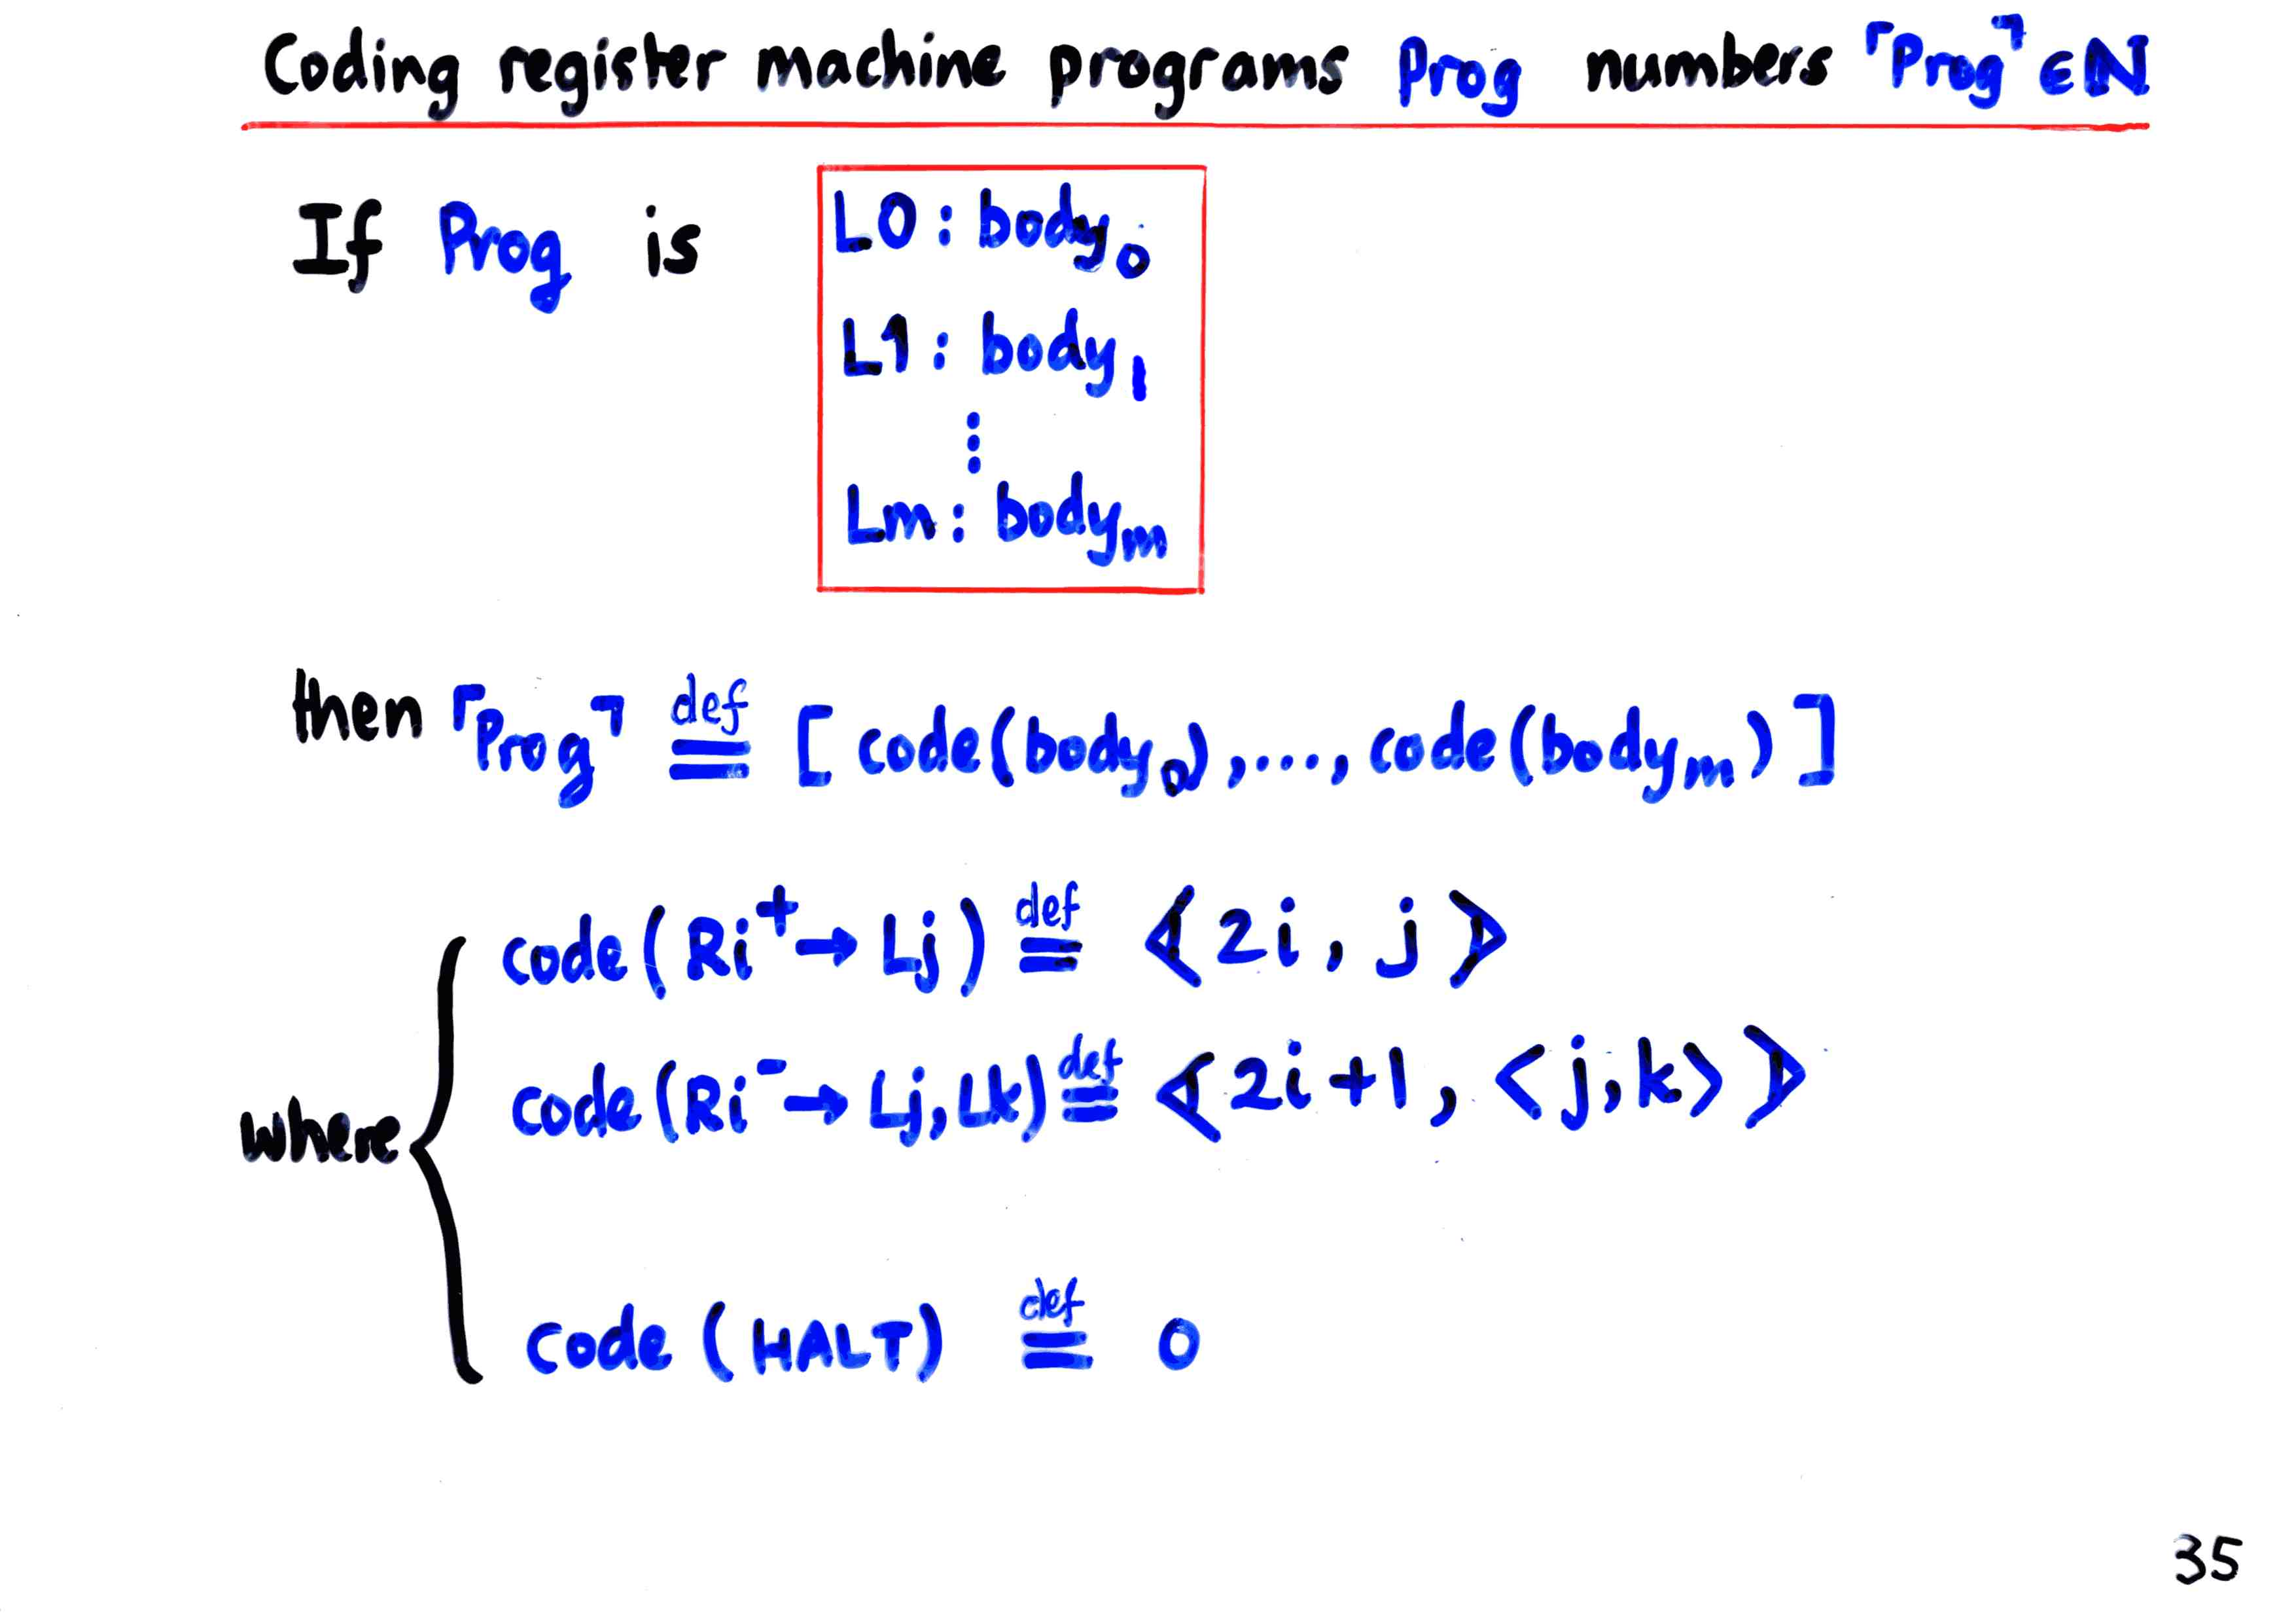 Coding register machine programs Prog numbers ⌜Prog⌝ ∈ ℕ
If Prog is
L0 : body₀
L1 : body₁
⋮
Lm : bodyₘ
then ⌜Prog⌝ ≝ [ code(body₀), ..., code(bodyₘ) ]
where
code(Ri⁺ → Lj) ≝ ⟪2i, j⟫
code(Ri⁻ → Lj, Lk) ≝ ⟪2i+1, <j,k>⟫
code (HALT) ≝ 0
35